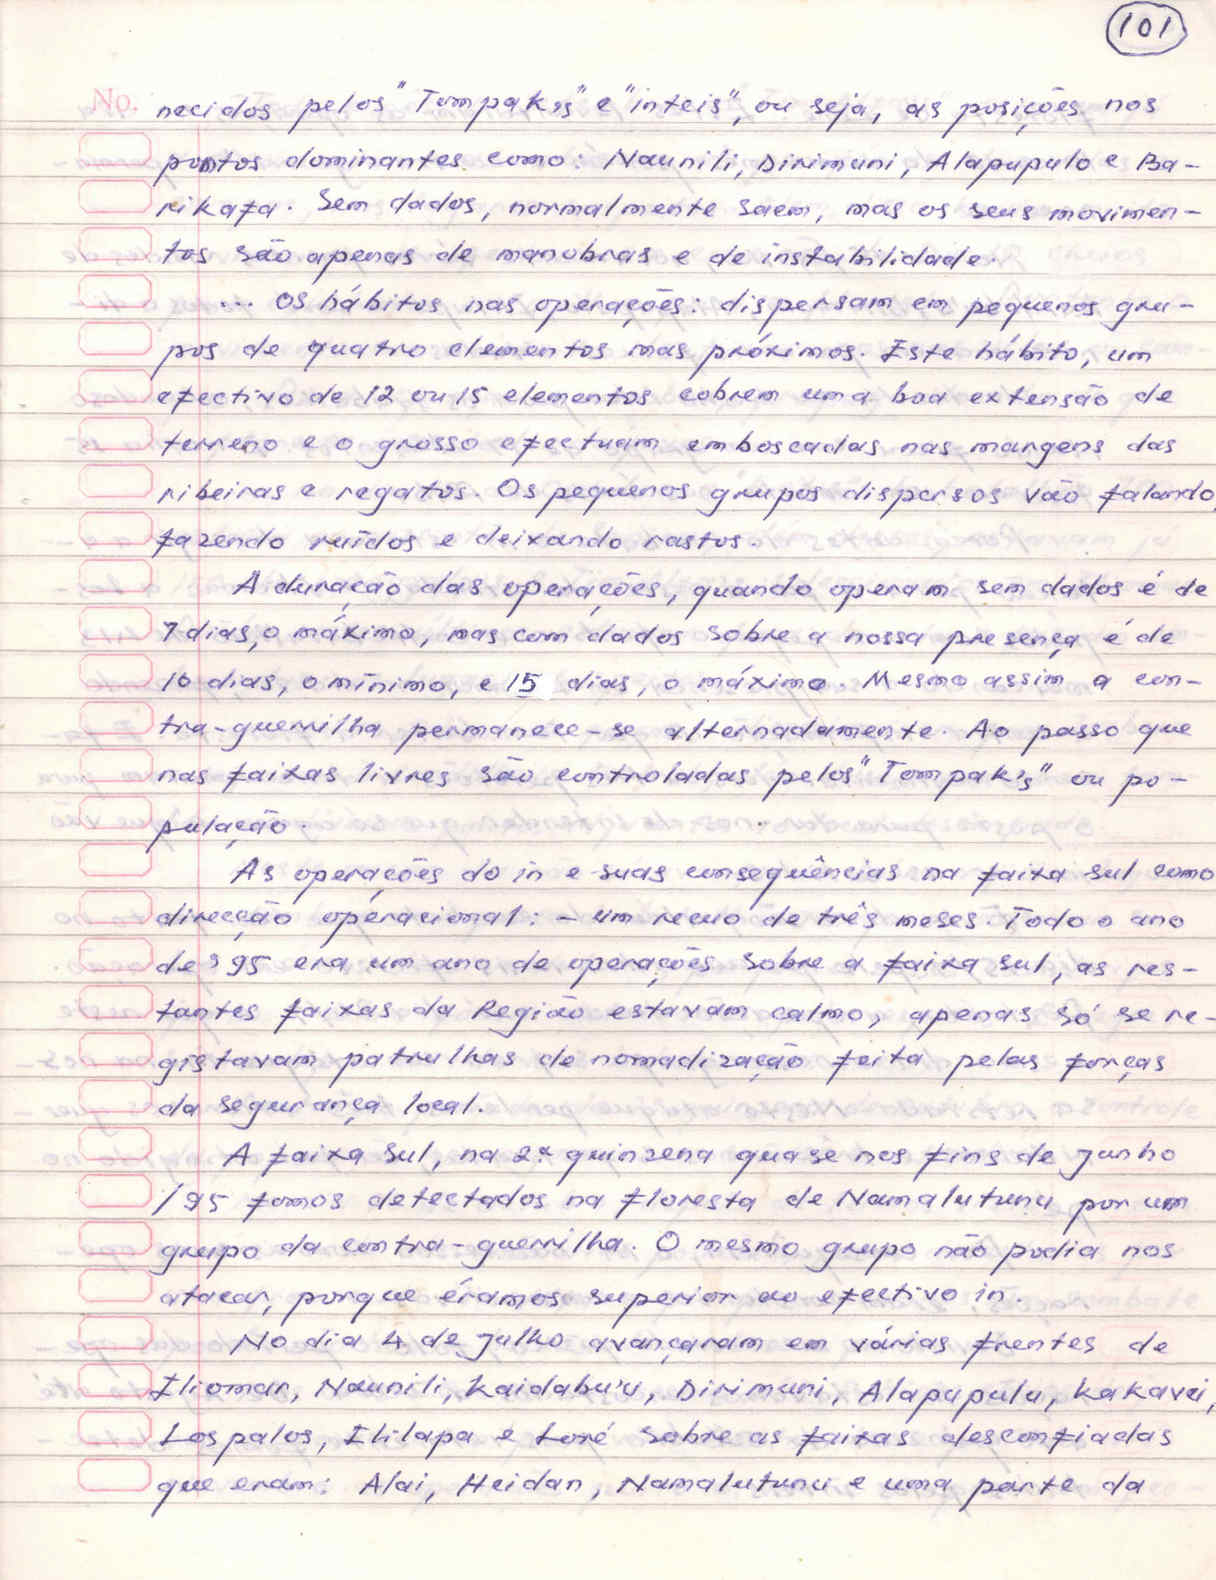 101
No.
necidos pelos "Tompak's" e "inteis", ou seja, as posições nos
pontos dominantes como: Naunili, Dirimuni, Alapupulo e Ba-
rikafa. Sem dados, normalmente saem, mas os seus movimen-
tos são apenas de manobras e de instabilidade.
... Os hábitos nas operações: dispersam em pequenos gru-
pos de quatro elementos mas próximos. Este hábito, um
efectivo de 12 ou 15 elementos cobrem uma boa extensão de
terreno e o grosso efectuam emboscadas nas margens das
ribeiras e regatos. Os pequenos grupos dispersos vão falando,
fazendo ruídos e deixando rastos.
A duração das operações, quando operam sem dados é de
7 dias, o máximo, mas com dados sobre a nossa presença é de
10 dias, o mínimo, e 15 dias, o máximo. Mesmo assim a con-
tra-guerrilha permanece-se alternadamente. Ao passo que
nas faixas livres são controladas pelos "Tompak's" ou po-
pulação.
As operações do in e suas consequências na faixa sul como
direcção operacional: - um recuo de três meses. Todo o ano
de 95 era um ano de operações sobre a faixa sul, as res-
tantes faixas da Região estavam calmo, apenas só se re-
gistavam patrulhas de nomadização feita pelas forças
da segurança local.
A faixa sul, na 2ª quinzena quase nos fins de Junho
/95 fomos detectados na floresta de Namalutunu por um
grupo da contra-guerrilha. O mesmo grupo não podia nos
atacar, porque éramos superior ao efectivo in.
No dia 4 de Julho avançaram em várias frentes de
Iliomar, Naunili, Kaidabu'u, Dirimuni, Alapupulu, Kakavei,
Lospalos, Ililapa e Loré sobre as faixas desconfiadas
que eram: Alai, Heidan, Namalutunu e uma parte da